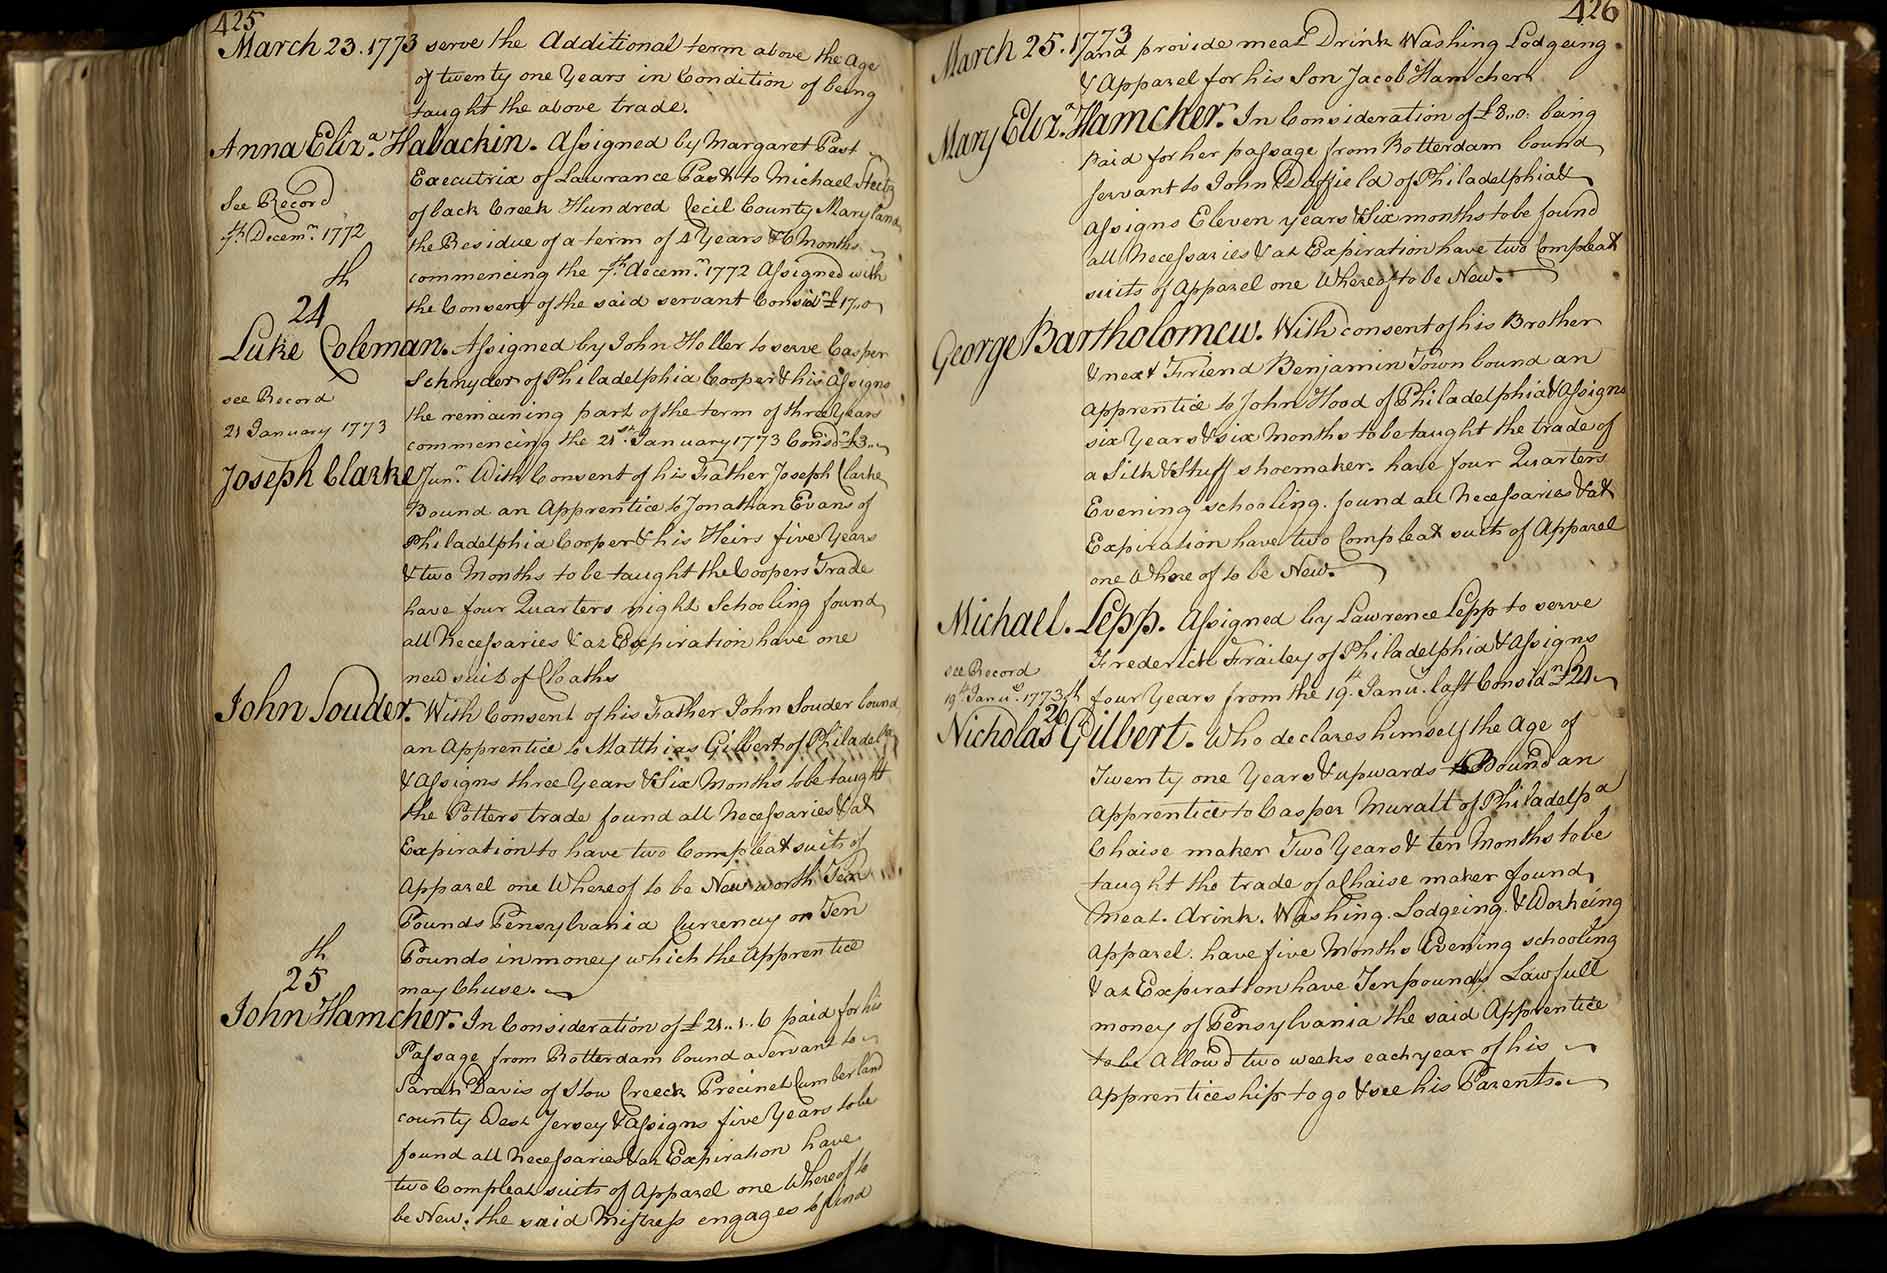 425
March 23. 1773 serve the Additional term above the Age
of twenty one Years in Condition of being
taught the above trade.
Anna Eliz.a Halackin. Assigned by Margaret Past
Executrix of Lawrance Past to Michael
See Record of back Creek Hundred Cecil County Maryland
7th Decemr. 1772 the Residue of a term of 4 Years & 6 Months
commencing the 7th. decemr. 1772 Assigned with
th
24 the Consent of the said servant Considn. £17..0
Luke Coleman. Assigned by John Holler to serve Casper
Schnyder of Philadelphia Cooper & his Assigns
see Record the remaining part of the term of three Years
21 January 1773 commencing the 21st. January 1773 Considn £3..
Joseph Clarke Junr. With Consent of his Father Joseph Clarke
Bound an Apprentice to Jonathan Evans of
Philadelphia Cooper & his Heirs five Years
& two Months to be taught the Coopers Trade
have four Quarters night Schooling found
all Necessaries & at Expiration have one
new suit of Cloaths
John Souder. With Consent of his Father John Souder bound
an Apprentice to Matthias Gilbert of Philadela
& Assigns three Years & Six Months to be taught
the Potters trade found all Necessaries & at
Expiration to have two Compleat suits of
Apparel one Whereof to be New worth Ten
Pounds Pensylvania Currency or Ten
th
Pounds in money which the Apprentice
25 may Chuse.
John Hamcher. In Consideration of £21..1..6 paid for his
Passage from Rotterdam bound a Servant to
Sarah Davis of Stow Creeck Precinct Cumberland
county West Jersey & Assigns five Years to be
found all Necessaries & at Expiration have
two Compleat suits of Apparel one Whereof to
be New. the said Mistress engages to find
426
March 25. 1773 and provide meat Drink Washing Lodgeing
& Apparel for his Son Jacob Hamcher
Mary Eliz.a Hamcher. In Consideration of £8..0. being
paid for her passage from Rotterdam bound
servant to John Duffield of Philadelphia &
Assigns Eleven years & Six months to be found
all Necessaries & at Expiration have two Compleat
suits of Apparel one Whereof to be New.
George Bartholomew. With consent of his Brother
& next Friend Benjamin Town bound an
Apprentice to John Hood of Philadelphia & Assigns
six Years & six Months to be taught the trade of
a Silk & Stuff shoemaker. have four Quarters
Evening schooling. found all Necessaries & at
Expiration have two Compleat suits of Apparel
one Whereof to be New.
Michael. Lepp. Assigned by Lawrence Lepp to serve
Frederick Frailey of Philadelphia & Assigns
see Record
19th. Janu.y 1773 four Years from the 19th. Janu.y last Considn £24
26th
Nicholas Gilbert. Who declares himself the Age of
Twenty one Years & upwards Bound an
Apprentice to Casper Muratt of Philadelpa
Chaise maker Two Years & ten Months to be
taught the trade of a Chaise maker found
Meat. drink. Washing. Lodgeing. & Workeing
Apparel. have five Months Evening schooling
& at Expiration have Ten pounds Lawfull
money of Pensylvania the said Apprentice
to be Allow'd two weeks each year of his
Apprenticeship to go & see his Parents.